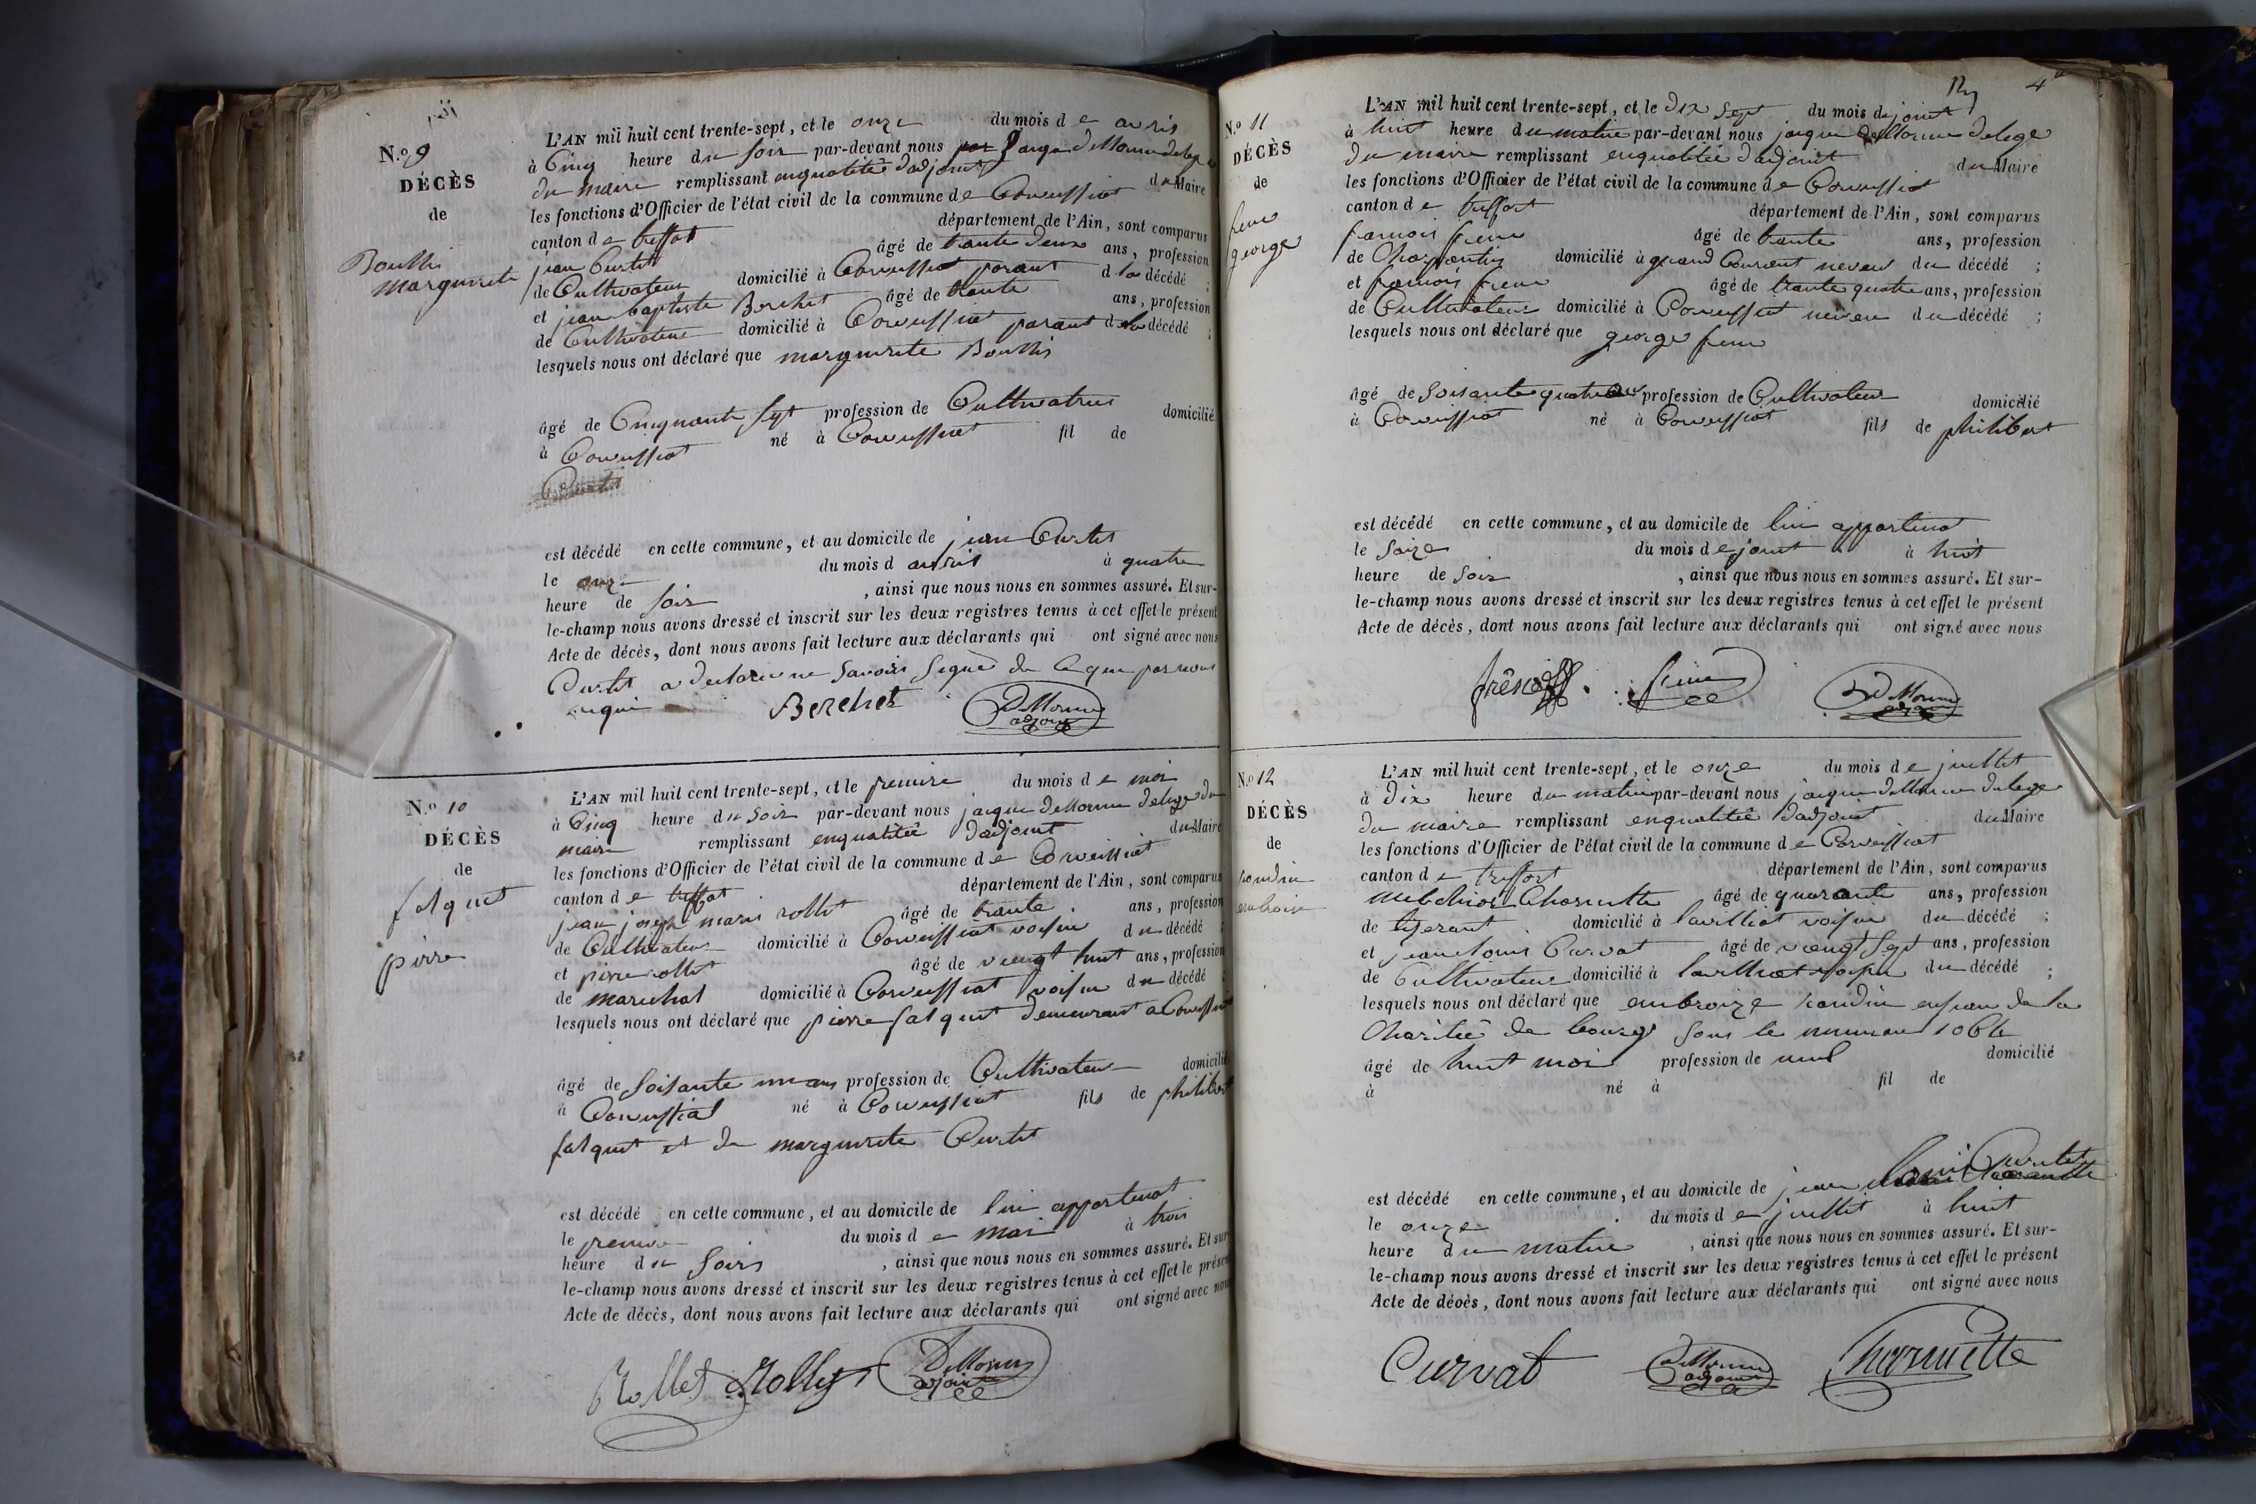 N.o 9
DÉCÈS
de
Bouthi
marguerite
L'AN mil huit cent trente-sept, et le onze du mois de avris
à Cinq heure du soir par-devant nous jaque
du maire remplissant enqualitée dadjoint du Maire
les fonctions d'Officier de l'état civil de la commune de Corveissiat
canton de treffort département de l'Ain, sont comparus
jean Curtet âgé de trante deux ans, profession
de Cultivateur domicilié à Corveissiat parant d la décédé ;
et jean baptiste Berchet âgé de trante ans, profession
de Cultivateur domicilié à Corveissiat parant de la décédé ;
lesquels nous ont déclaré que marguerite Bouthi
âgé de Cinquante sept profession de Cultivatrice domicilié
à Corveissiat né à Corveissiat fil de
est décédé en cette commune, et au domicile de jean Curtet
le onze du mois d avris à quatre
heure de soir , ainsi que nous nous en sommes assuré. Et sur-
le-champ nous avons dressé et inscrit sur les deux registres tenus à cet effet le présent
Acte de décès, dont nous avons fait lecture aux déclarants qui ont signé avec nous
Curtet a declarer ne savoir signé de ce que par nous
Berchet DeMornu adjoint
N.o 10
DÉCÈS
de
falquet
pierre
L'AN mil huit cent trente-sept, et le premire du mois de mai
à Cinq heure du soir par-devant nous jaque deMornu delege du
maire remplissant enqualitée dadjoint du Maire
les fonctions d'Officier de l'état civil de la commune de Corveissiat
canton de treffort département de l'Ain, sont comparus
jean joseph marie rollet âgé de trante ans, profession
de Cultivateur domicilié à Corveissiat voisin du décédé ;
et pierre rollet âgé de veengt huit ans, profession
de marechal domicilié à Corveissiat voisin du décédé ;
lesquels nous ont déclaré que pierre falquet demeurant a Corveissiat
âgé de soisante un ans profession de Cultivateur domicilié
à Corveissiat né à Corveissiat fils de philibert
falquet et de marguerite Curtet
est décédé en cette commune, et au domicile de lui appartenat
le premire du mois de mai à trois
heure du soirs , ainsi que nous nous en sommes assuré. Et sur-
le-champ nous avons dressé et inscrit sur les deux registres tenus à cet effet le présent
Acte de décès, dont nous avons fait lecture aux déclarants qui ont signé avec nous
Rollet Rollet DeMornu adjoint
4
N.o 11
DÉCÈS
de
george
L'AN mil huit cent trente-sept, et le dix sept du mois de jouint
à huit heure du matin par-devant nous jaque deMornu delege
du maire remplissant enqualitée dadjoint du Maire
les fonctions d'Officier de l'état civil de la commune de Corveissiat
canton de treffort département de l'Ain, sont comparus
âgé de trante ans, profession
de Charpentier domicilié à grand Courent neveu du décédé ;
et âgé de trante quatre ans, profession
de Cultivateur domicilié à Corveissiat neveu du décédé ;
lesquels nous ont déclaré que george
âgé de soisante quatre ans profession de Cultivateur domicilié
à Corveissiat né à Corveissiat fils de philibert
est décédé en cette commune, et au domicile de lui appartinat
le saize du mois de jouint à huit
heure de soir , ainsi que nous nous en sommes assuré. Et sur-
le-champ nous avons dressé et inscrit sur les deux registres tenus à cet effet le présent
Acte de décès, dont nous avons fait lecture aux déclarants qui ont signé avec nous
DeMornu adjoint
N.o 12
DÉCÈS
de
L'AN mil huit cent trente-sept, et le onze du mois de juillet
à dix heure du matin par-devant nous jaque deMornu delege
du maire remplissant enqualitée dadjoint du Maire
les fonctions d'Officier de l'état civil de la commune de Corveissiat
canton de treffort département de l'Ain, sont comparus
melchior Charnette âgé de quarante ans, profession
de tiserant domicilié à lavilliat voisin du décédé ;
et jean louis Curvat âgé de veengt sept ans, profession
de Cultivateur domicilié à lavilliat voisin du décédé ;
lesquels nous ont déclaré que embroize enfean de la
Charitée de bourg sous le numeau 1064
âgé de huit moi profession de nul domicilié
à né à fil de
est décédé en cette commune, et au domicile de jean
le onze du mois de juillet à huit
heure du matin , ainsi que nous nous en sommes assuré. Et sur-
le-champ nous avons dressé et inscrit sur les deux registres tenus à cet effet le présent
Acte de décès, dont nous avons fait lecture aux déclarants qui ont signé avec nous
Curvat DeMornu adjoint Charnette